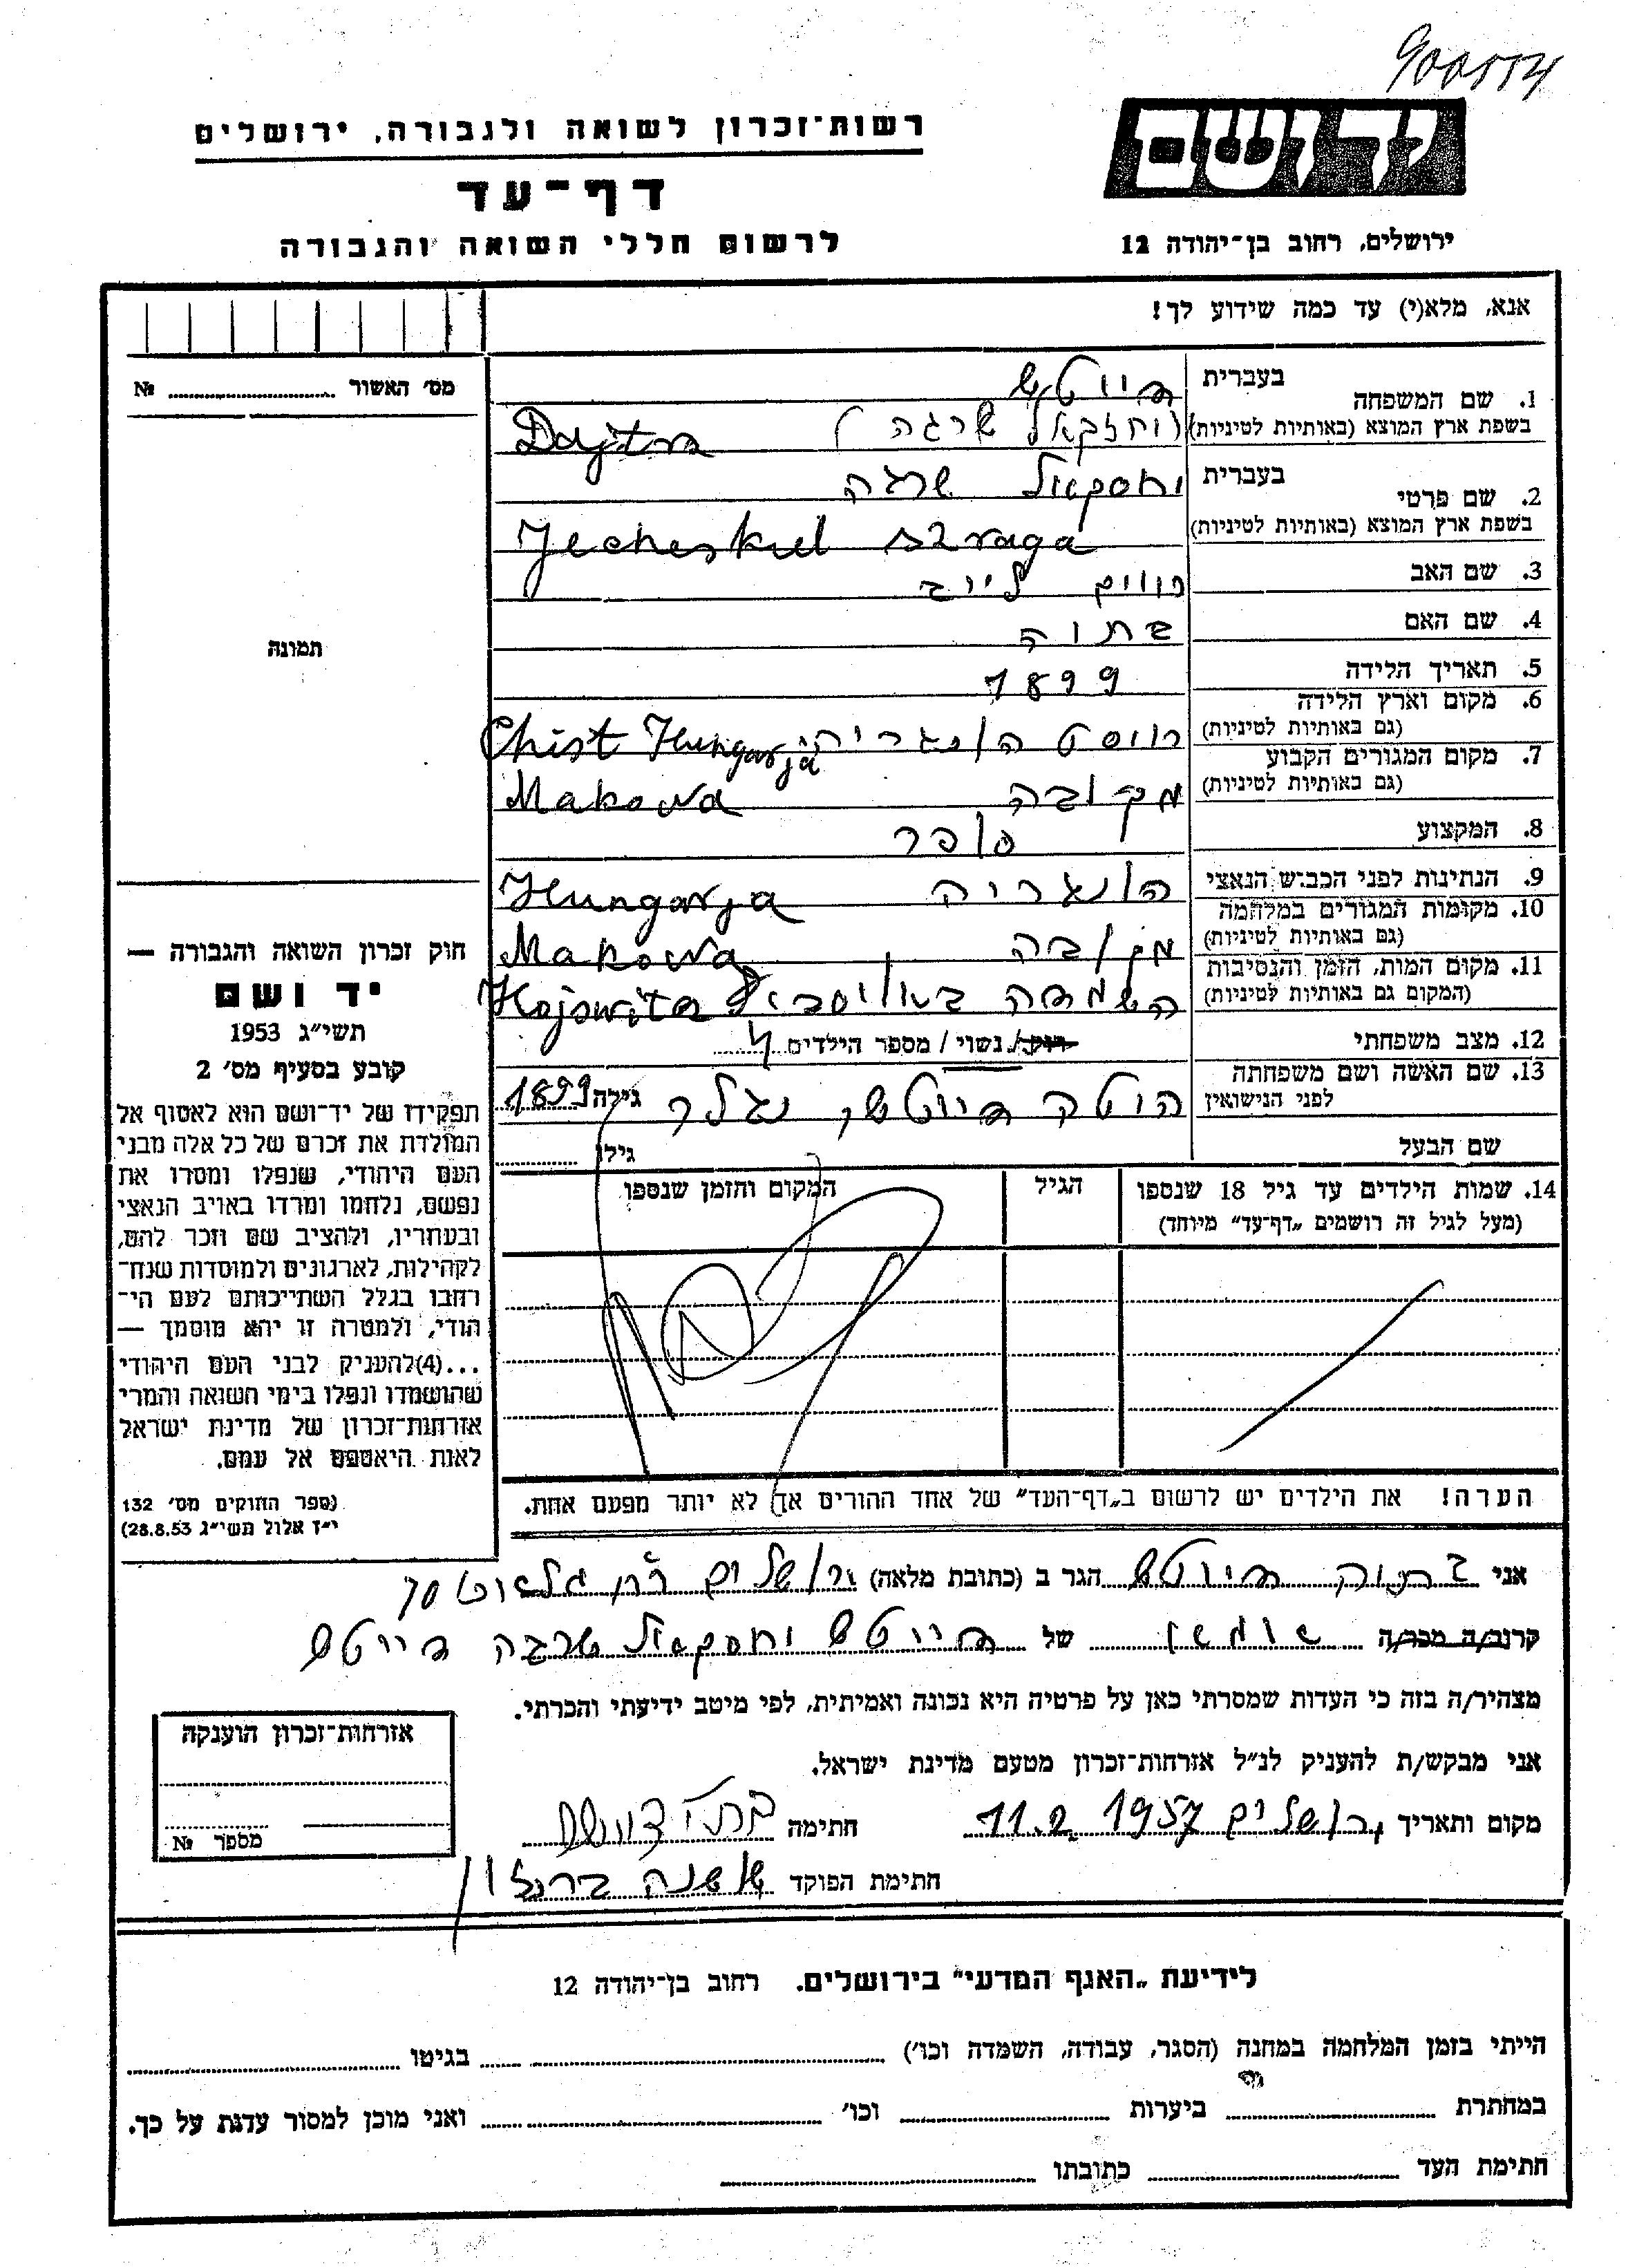 900554
רשות-זכרון לשואה ולגבורה, ירושלים
דף-עד
לרשום חללי השואה והגבורה
ידושם
ירושלים, רחוב בן-יהודה 12
אנא, מלא(י) עד כמה שידוע לך!
מס' האשור № 
תמונה
1. שם המשפחה בעברית דייטש
בשפת ארץ המוצא (באותיות לטיניות) (יחזקאל שרגה) Dajtsz
2. שם פרטי בעברית יחסקאל שרגה
בשפת ארץ המוצא (באותיות לטיניות) Jecheskiel Szraga
3. שם האב חיים לייב
4. שם האם
5. תאריך הלידה 1899
6. מקום וארץ הלידה (גם באותיות לטיניות) חוסט הונגריה Chist Hungarja
7. מקום המגורים הקבוע (גם באותיות לטיניות) מקובה Makowa
8. המקצוע סופר
9. הנתינות לפני הכבוש הנאצי הונגריה Hungarja
10. מקומות המגורים במלחמה (גם באותיות לטיניות) מקובה Makowa
11. מקום המות, הזמן והנסיבות (המקום גם באותיות לטיניות) השמדה
12. מצב משפחתי רוק/ נשוי / מספר הילדים 4
13. שם האשה ושם משפחתה לפני הנישואין דייטש, גילה 1899
שם הבעל גילו
14. שמות הילדים עד גיל 18 שנספו
(מעל לגיל זה רושמים "דף-עד" מיוחד)
הגיל
המקום והזמן שנספו
הערה! את הילדים יש לרשום ב"דף-העד" של אחד ההורים אך לא יותר מפעם אחת.
חוק זכרון השואה והגבורה —
יד ושם
תשי"ג 1953
קובע בסעיף מס' 2
תפקידו של יד-ושם הוא לאסוף אל
המולדת את זכרם של כל אלה מבני
העם היהודי, שנפלו ומסרו את
נפשם, נלחמו ומרדו באויב הנאצי
ובעוזריו, ולהציב שם וזכר להם,
לקהילות, לארגונים ולמוסדות שנח-
רחבו בגלל השתייכותם לעם הי-
הודי, ולמטרה זו יהא מוסמך —
...(4)להעניק לבני העם היהודי
שהושמדו ונפלו בימי השואה והמרי
אזרחות-זכרון של מדינת ישראל
לאות היאספם אל עמם.
(ספר החוקים מס' 132
י"ז אלול תשי"ג 28.8.53)
אני ברוך דייטש הגר ב (כתובת מלאה) ירושלים
קרוב/ה מכר/ה של דייטש יחסקאל שרגה דייטש
מצהיר/ה בזה כי העדות שמסרתי כאן על פרטיה היא נכונה ואמיתית, לפי מיטב ידיעתי והכרתי.
אני מבקש/ת להעניק לנ"ל אזרחות-זכרון מטעם מדינת ישראל.
מקום ותאריך ירושלים 1957 חתימה
חתימת הפוקד שושנה
אזרחות-זכרון הוענקה
מספר №
לידיעת "האגף המדעי" בירושלים. רחוב בן-יהודה 12
הייתי בזמן המלחמה במחנה (הסגר, עבודה, השמדה וכו') בגיטו
במחתרת ביערות וכו' ואני מוכן למסור עדות על כך.
חתימת העד כתובתו